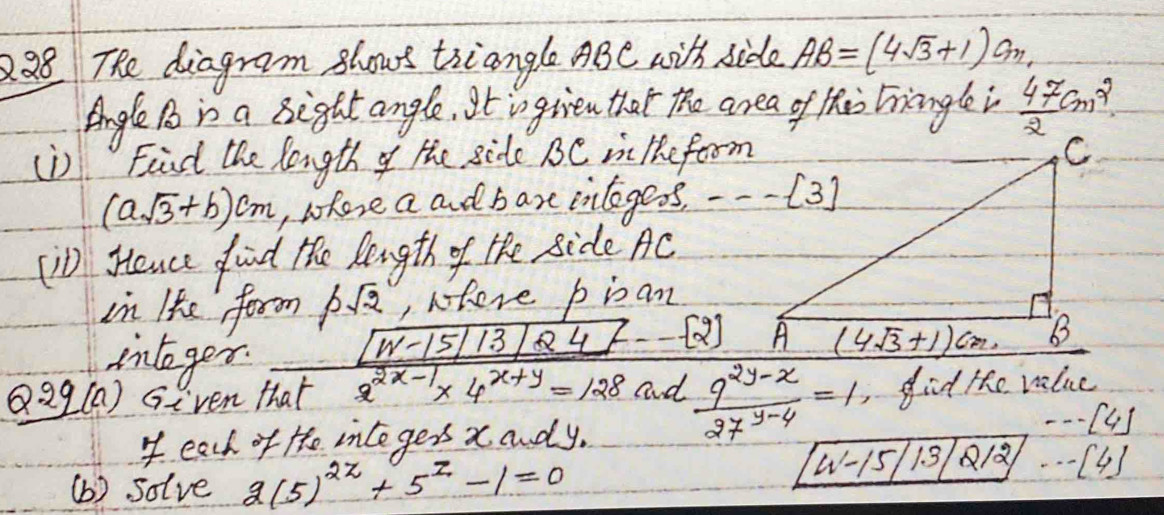 Q28 The diagram shows triangle ABC with side AB = (4√3+1) cm,
Angle B is a right angle. It is given that the area of this triangle is 47/2 cm².
(i) Find the length of the side BC in the form
(a√3+b) cm, where a and b are integers. ---[3]
(ii) Hence find the length of the side AC
in the form p√2, where p is an
integer. W-15/13/Q4 ---[2]
C
A (4√3+1) cm. B
Q29 (a) Given that 2^(2x-1) × 4^(x+y) = 128 and 9^(2y-x)/27^(y-4) = 1, find the value
of each of the integers x and y. ---[4]
(b) Solve 2(5)^(2z) + 5^z - 1 = 0 W-15/13/Q12 ---[4]